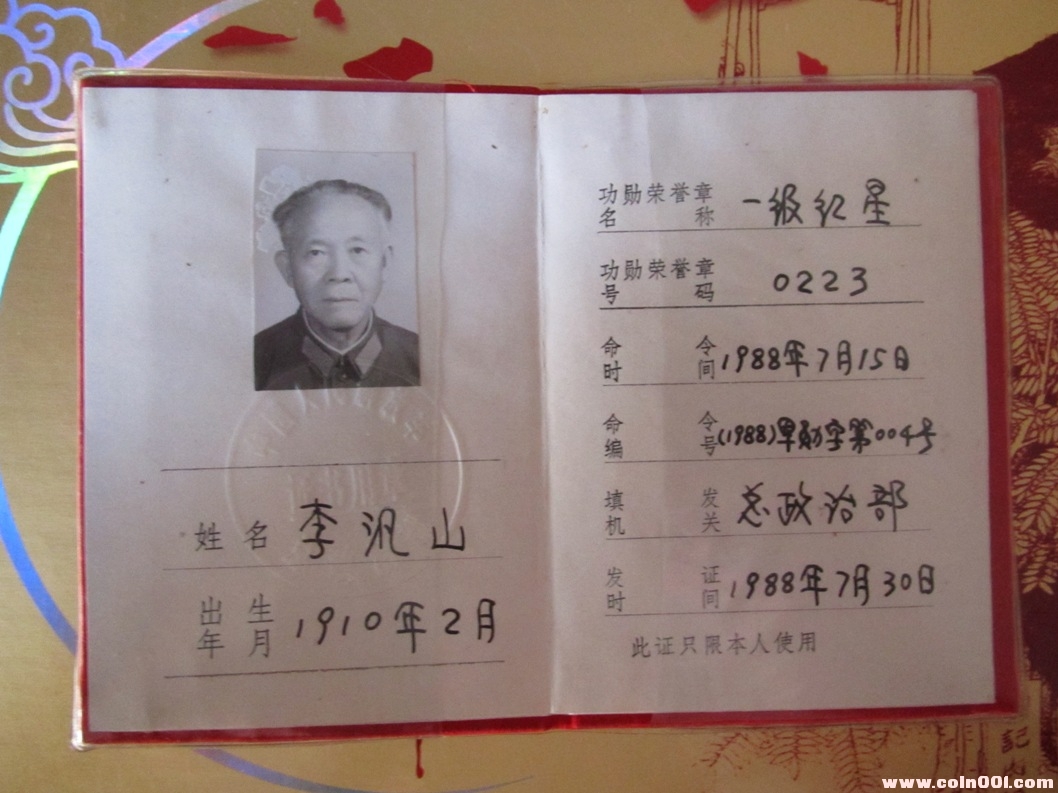 姓名 李汎山
出生年月 1910年2月
功勋荣誉章名称 一级红星
功勋荣誉章号码 0223
命令时间 1988年7月15日
命令编号 (1988)军勋字第004号
填发机关 总政治部
发证时间 1988年7月30日
此证只限本人使用
記
www.coin001.com